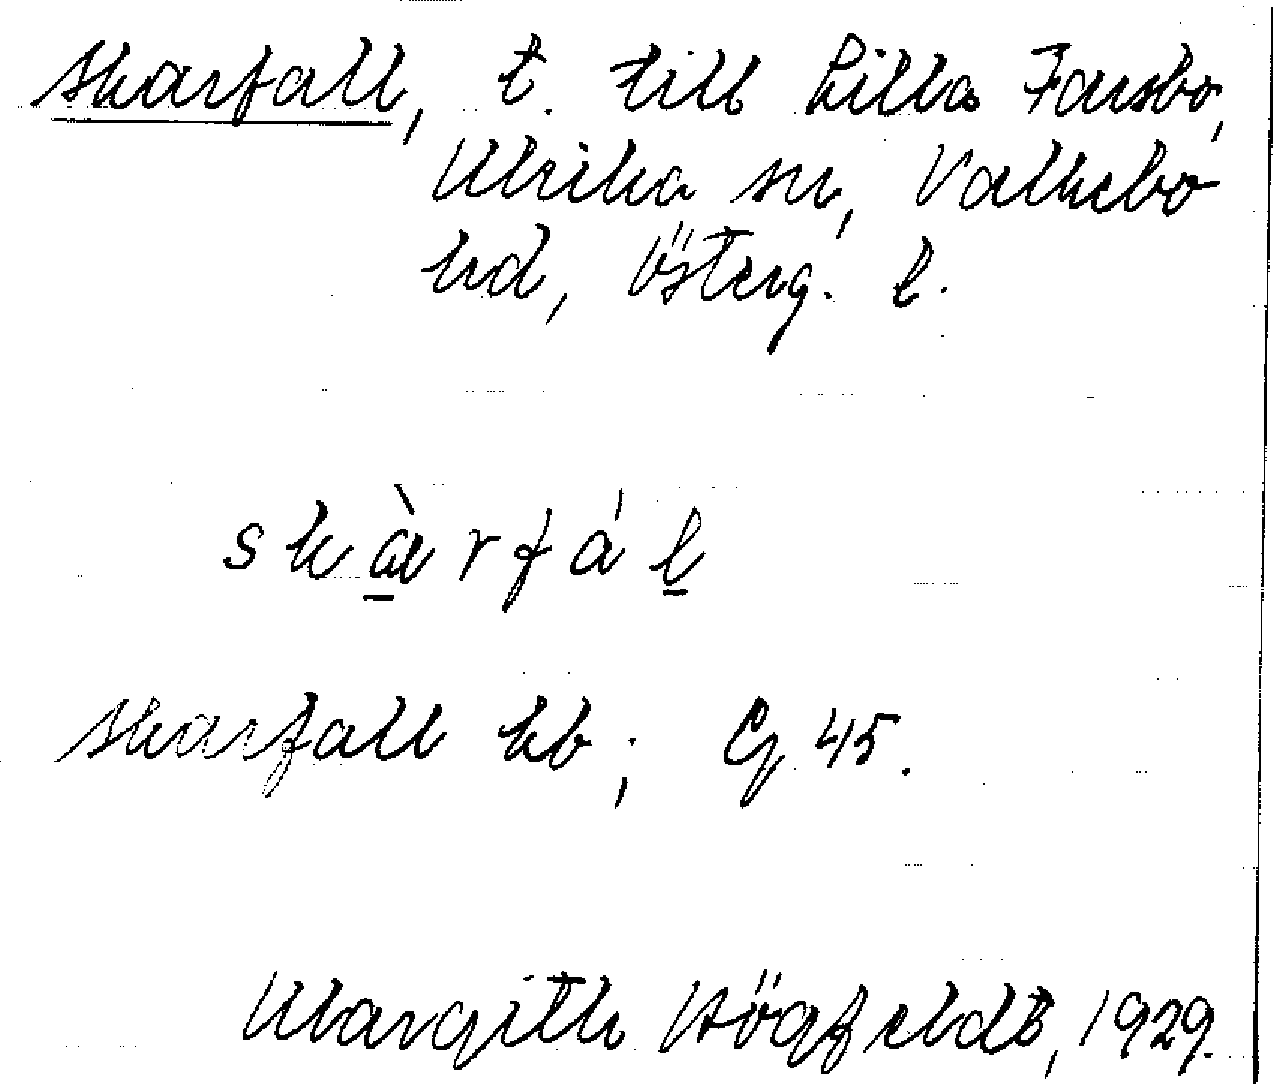 Skarfall, t. till Lilla Farsbo,
Ulrika sn, Valkebo
hd, Österg. l.
skàrfál
Skarfall kb; Eg 45.
Margith Högfeldt, 1929.